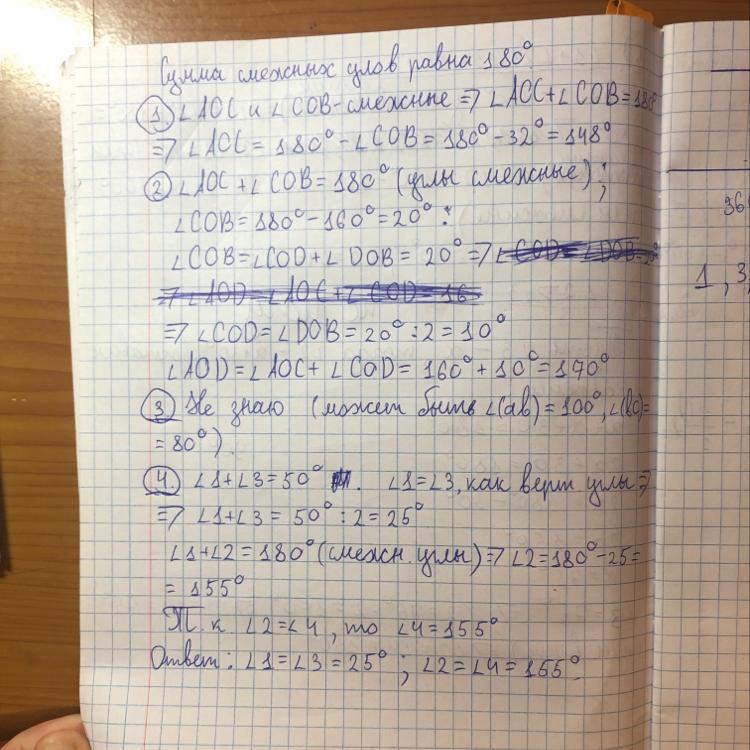 Сумма смежных улов равна 180°
1. ∠AOC и ∠COB-смежные => ∠AOC+∠COB=180°
=> ∠AOC=180°-∠COB=180°-32°=148°
2 ∠AOC+∠COB=180° (углы смежные);
∠COB=180°-160°=20°.
∠COB=∠COD+∠DOB=20° => ∠COD=∠DOB=20°
=> ∠AOD=∠AOC+∠COD=16
=> ∠COD=∠DOB=20°:2=10°
∠AOD=∠AOC+∠COD=160°+10°=170°
3 Не знаю (может быть ∠(ab)=100°, ∠(bc)=
=80°).
4. ∠1+∠3=50°. ∠1=∠3, как верт углы =>
=> ∠1+∠3=50°:2=25°
∠1+∠2=180° (смежн. углы) => ∠2=180°-25=
=155°
Т.к ∠2=∠4, то ∠4=155°
Ответ: ∠1=∠3=25°; ∠2=∠4=155°
36
1, 3,